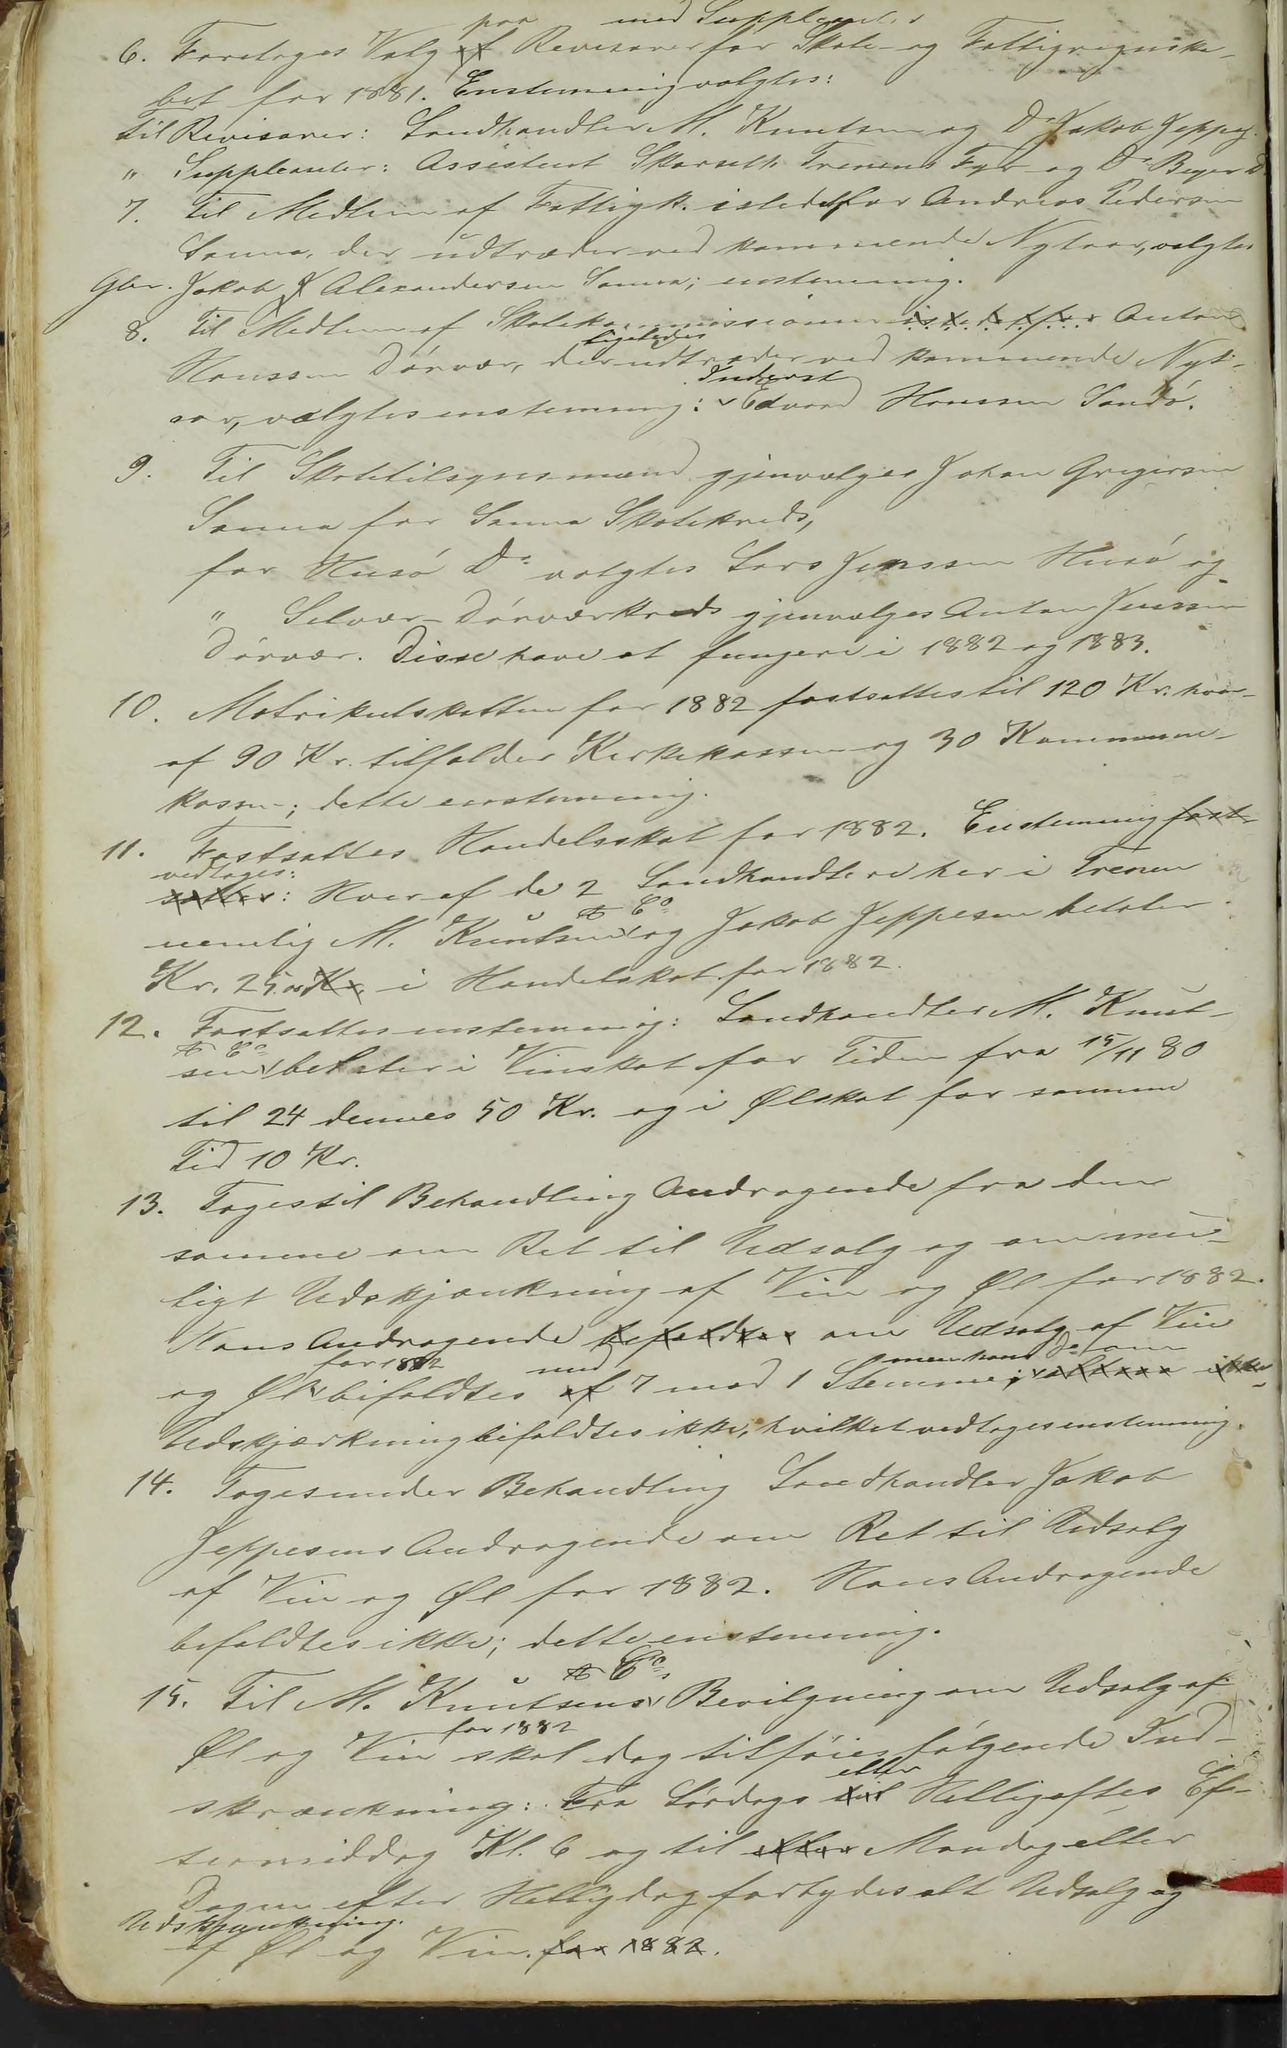 6. Foretoges Valg ~~af~~ paa Revisorer med Suppleanter for Skole- og Fattigregnska-
bet for 1881. Enstemmig valgtes:
Til Revisorer: Landhandler M. Knutsen og Do Jakob Jeppes.
" Suppleanter: Assistent Skarseth Trænens Fyr og Do Beyer Do
7. Til Medlem af Fattigk. istedetfor Andreas Pedersen
Sanna, der udtræder ved kommende Nytaar, valgtes
Gbr. Jakob Alexandersen Sanna; enstemmig.
8. Til Medlem af Skolekommissionen ~~istedetfor~~ Anton
Hanssen Dørvær, der ligeledes udtræder ved kommende Nyt-
aar, valgtes enstemmig: Inderst Edvard Hanssen Sandø.
9. Til Skoletilsynsmænd gjenvalges Johan Gregersen
Sanna for Sanna Skolekreds,
for Husø Do valgtes Lars Jenssen Husø og
" Selvær-Dørværkreds gjenvalges Anton Jenssen
Dørvær. Disse have at fungere i 1882 og 1883.
10. Matrikulskatten for 1882 fastsattes til 120 Kr. hvor-
af 90 Kr. tilfalder Kirkekassen og 30 Kommune-
kassen; dette enstemmig.
11. Fastsattes Handelsskat for 1882. Enstemmig ~~fast-~~
~~sattes~~ vedtoges: Hver af de 2 Landhandlere her i Trænen
nemlig M. Knutsen & Co og Jakob Jeppesen betaler
Kr. 25.00 ~~Kr.~~ i Handelskat for 1882.
12. Fastsattes enstemmig: Landhandler M. Knut-
sen & Co betaler i Vinskat for Tiden fra 15/11 80
til 24 dennes 50 Kr. og i Ølskat for samme
Tid 10 Kr.
13. Toges til Behandling Andragende fra den
samme om Ret til Udsalg og om mu-
ligt Udskjænkning af Vin og Øl for 1882.
Hans Andragende ~~bifaldtes~~ om Udsalg af Vin
og Øl for 1882 bifaldtes ~~af~~ med 7 mod 1 Stemme; men hans Do om ~~ikke~~
Udskjænkning bifaldtes ikke, hvilket vedtoges enstemmig.
14. Toges under Behandling Landhandler Jakob
Jeppesens Andragende om Ret til Udsalg
af Vin og Øl for 1882. Hans Andragende
bifaldtes ikke; dette enstemmig.
15. Til M. Knutsens & Co's Bevilgning om Udsalg af
Øl og Vin for 1882 skal dog tilføies følgende Ind-
skrænkning: Fra Lørdags ~~til~~ eller Helligaftes Ef-
termiddag Kl. 6 og til ~~efter~~ Mandag eller
Dagen efter Helligdag forbydes alt Udsalg og
Udskjænkning
af Øl og Vin. ~~for 1882.~~